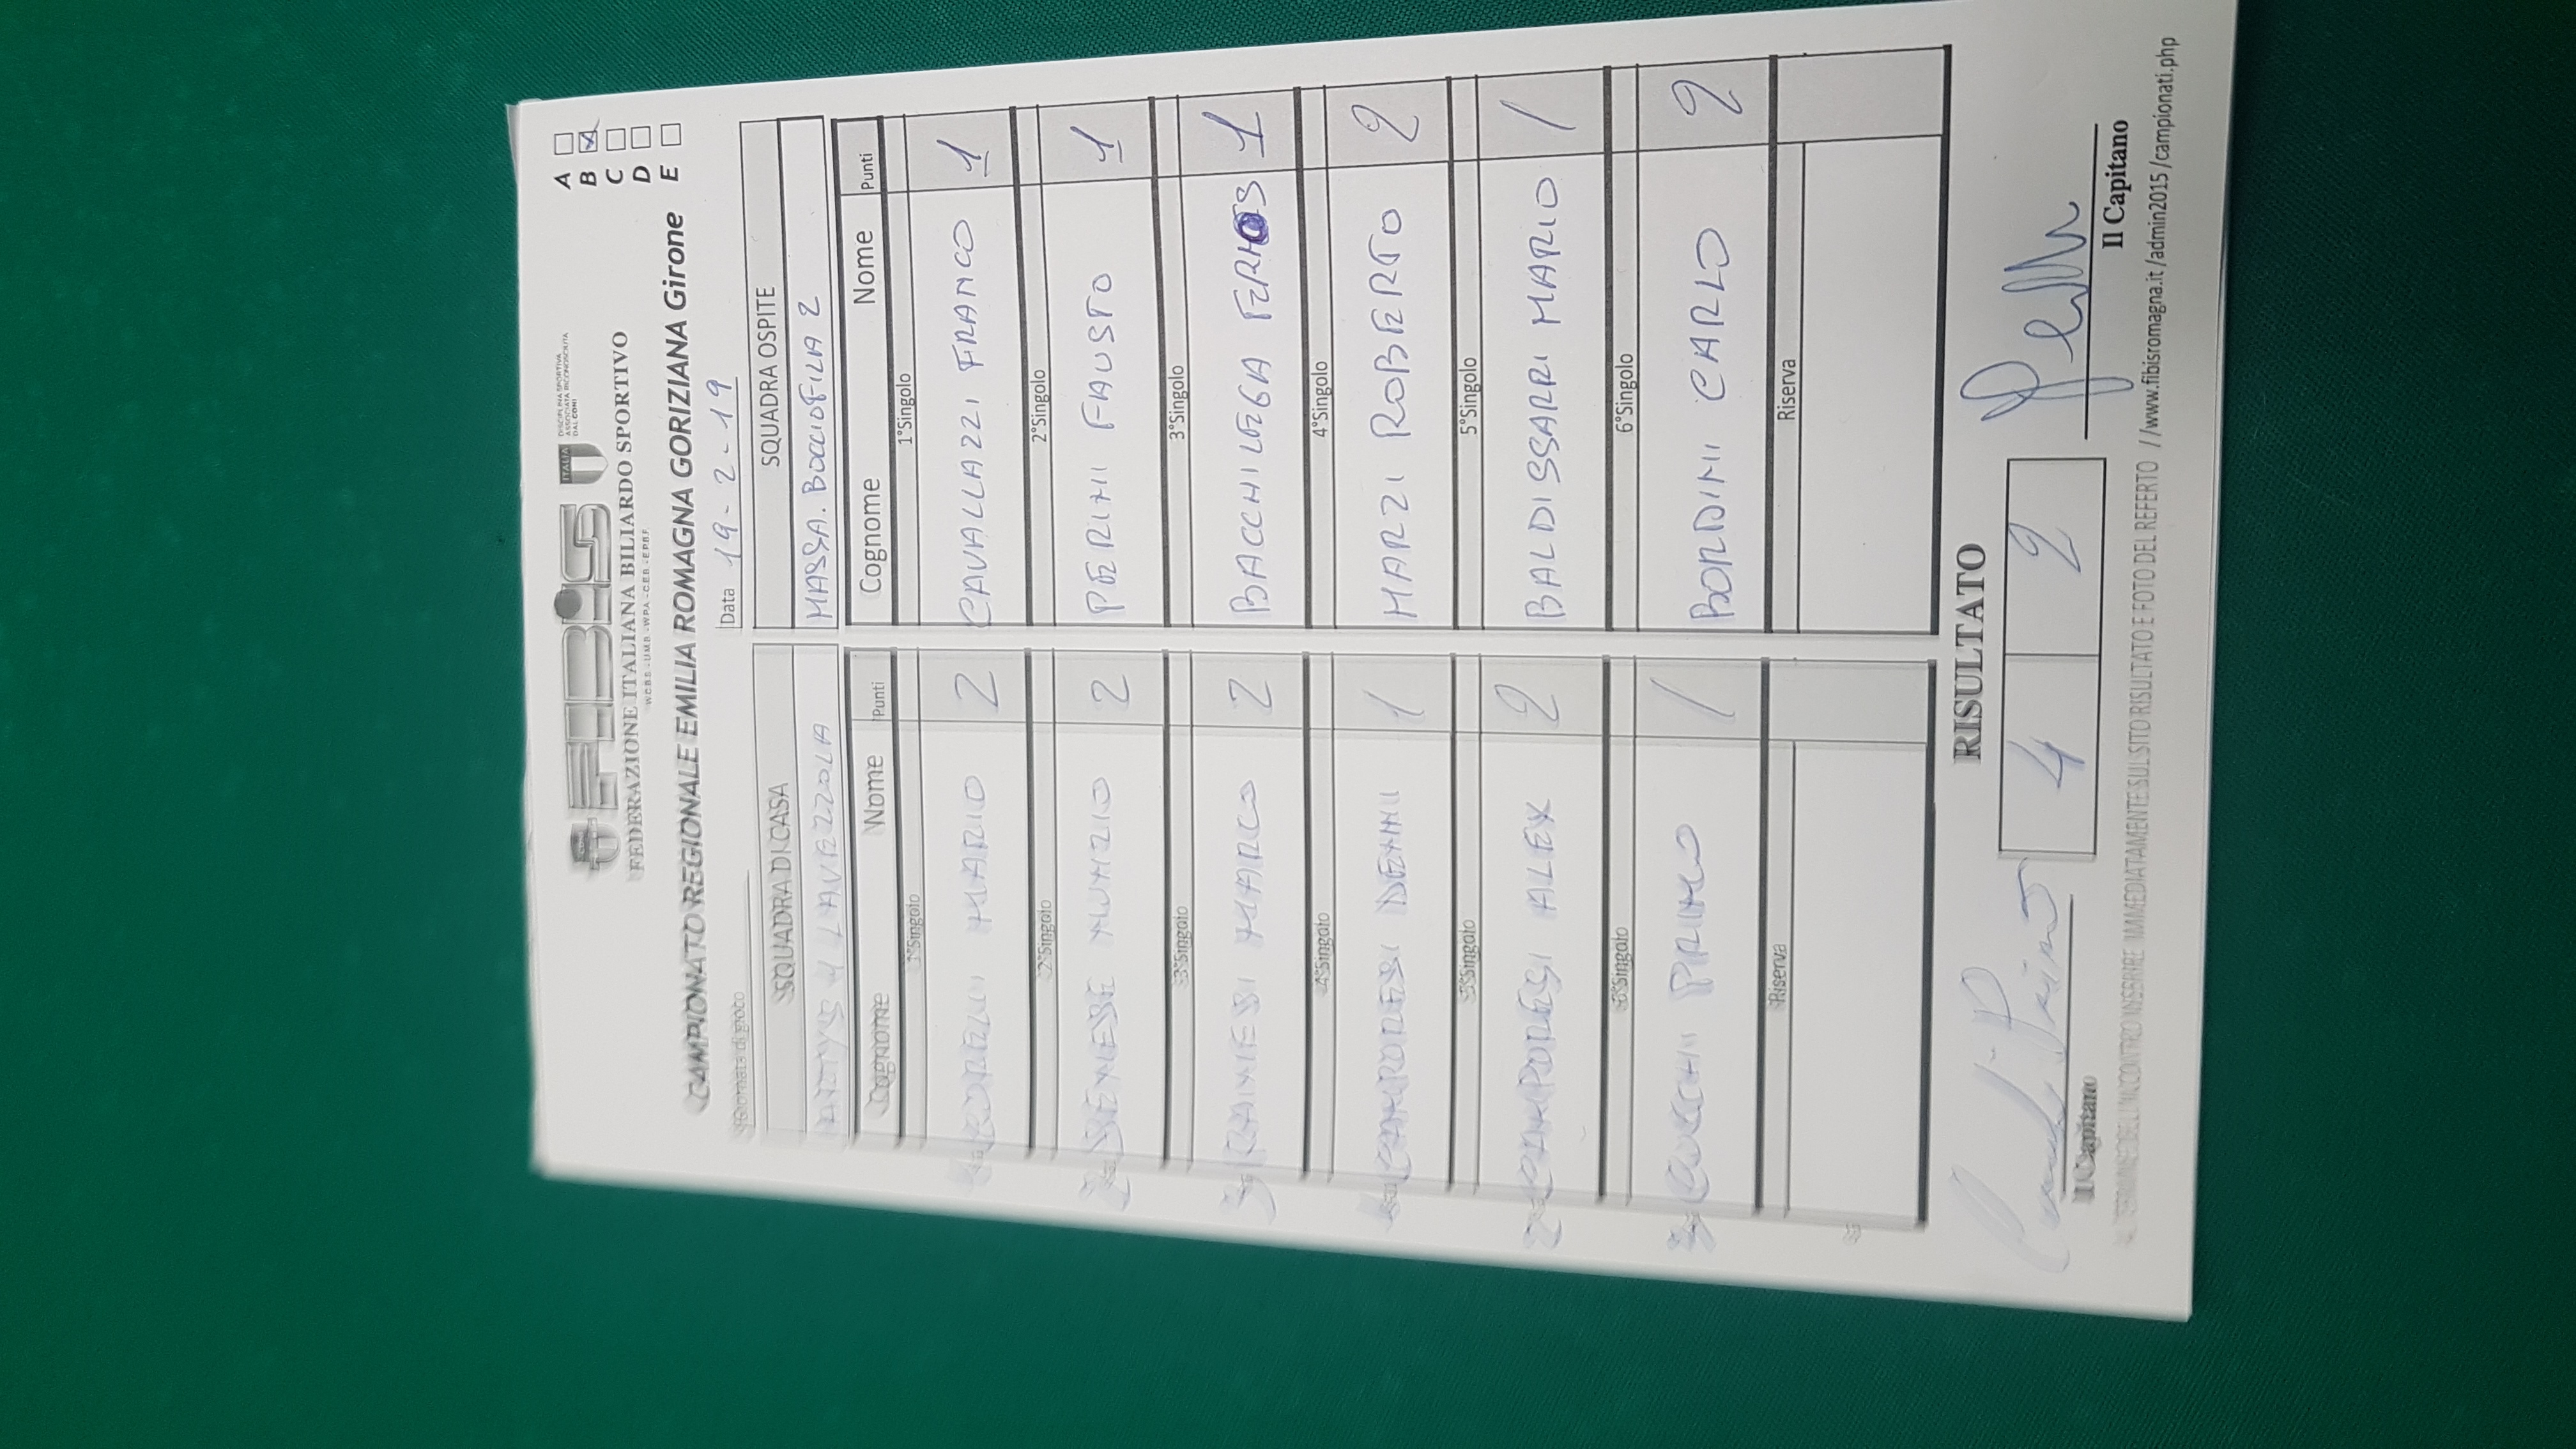 FIBiS
ITALIA
DISCIPLINA SPORTIVA
ASSOCIATA RICONOSCIUTA
DAL CONI
FEDERAZIONE ITALIANA BILIARDO SPORTIVO
W.C.B.S. - U.M.B. - W.P.A. - C.E.B. - E.P.B.F.
CAMPIONATO REGIONALE EMILIA ROMAGNA GORIZIANA Girone
A
B X
C
D
E
Giornata di gioco
Data 19-2-19
SQUADRA DI CASA SQUADRA OSPITE
LAVEZZOLA MASSA. BOCCIOFILA 2
Cognome Nome Punti Cognome Nome Punti
1°Singolo 1°Singolo
MARIO 2 CAVALLAZZI FRANCO 1
2°Singolo 2°Singolo
NUNZIO 2 PERINI FAUSTO 1
3°Singolo 3°Singolo
MARCO 2 BACCHILEGA 1
4°Singolo 4°Singolo
CAMPORESI DENNI 1 MARZI ROBERTO 2
5°Singolo 5°Singolo
CAMPORESI ALEX 2 BALDISSARRI MARIO 1
6°Singolo 6°Singolo
PRIMO 1 BORDINI CARLO 2
Riserva Riserva
RISULTATO
4 2
Il Capitano Il Capitano
AL TERMINE DELL'INCONTRO INSERIRE IMMEDIATAMENTE SUL SITO RISULTATO E FOTO DEL REFERTO //www.fibisromagna.it/admin2015/campionati.php